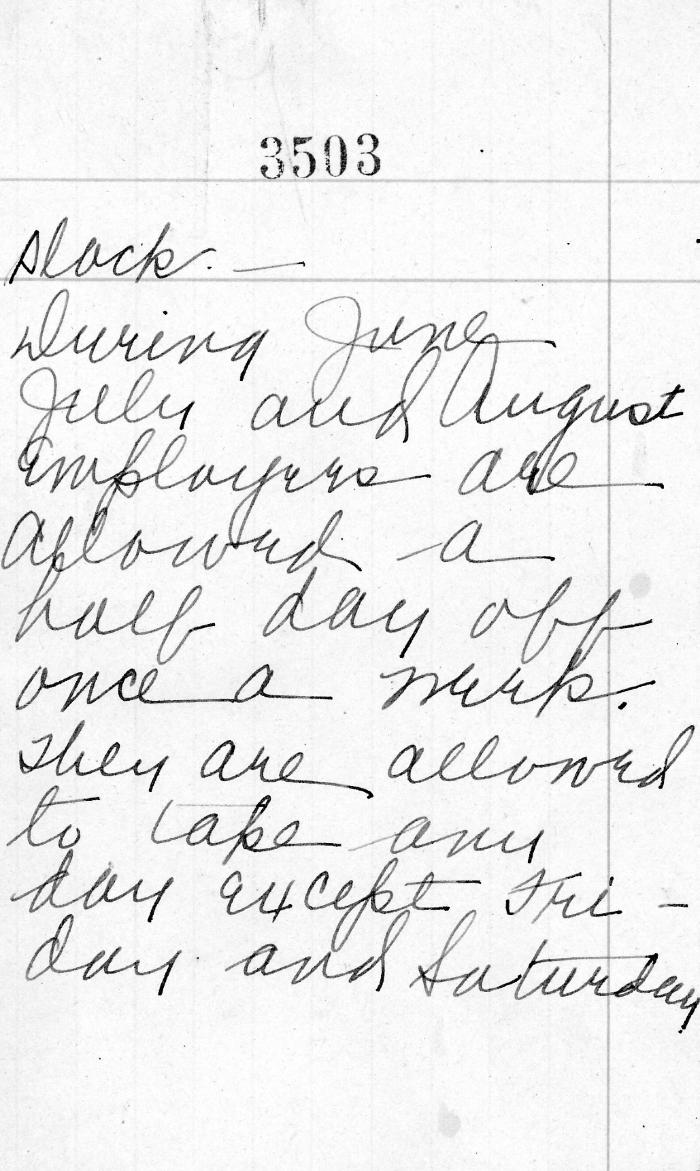 3503
slack. —
During June
July and August
Employees are
allowed a
half day off
once a week.
They are allowed
to take any
day except Fri -
day and Saturday